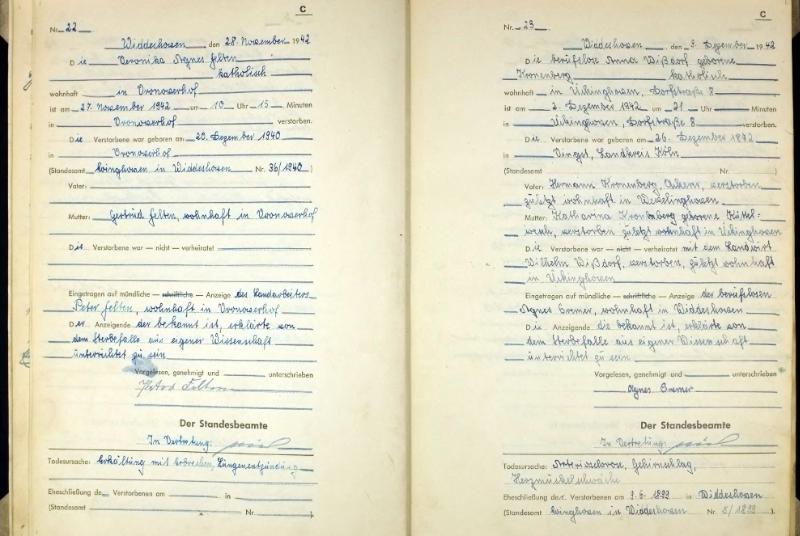 C
Nr. 22
Widdeshoven, den 28. November 1942
Die Veronika Agnes Felten
katholisch
wohnhaft in Vronoverhof
ist am 27. November 1942 um 10 Uhr 15 Minuten
in Vronoverhof verstorben.
Die Verstorbene war geboren am 29. Dezember 1940
in Vronoverhof
(Standesamt Evinghoven in Widdeshoven Nr. 36/1940)
Vater:
Mutter: Gertrud Felten, wohnhaft in Vronoverhof
Die Verstorbene war — nicht — verheiratet
Eingetragen auf mündliche — schriftliche — Anzeige des Landarbeiters
Peter Felten, wohnhaft in Vronoverhof
Der Anzeigende der bekannt ist, erklärte von
dem Sterbefalle aus eigener Wissenschaft
unterrichtet zu sein
Vorgelesen, genehmigt und unterschrieben
Peter Felten
Der Standesbeamte
In Vertretung:
Todesursache: Erkältung mit Erbrechen, Lungenentzündung
Eheschließung de Verstorbenen am in
(Standesamt Nr. )
C
Nr. 23
Widdeshoven, den 3. Dezember 1942
Die berufslose Anna Wißdorf geborene
Kronenberg, katholisch
wohnhaft in Ückinghoven, Dorfstraße 8
ist am 2. Dezember 1942 um 21 Uhr Minuten
in Ückinghoven, Dorfstraße 8 verstorben.
Die Verstorbene war geboren am 26. Dezember 1872
in Vingst, Landkreis Köln
(Standesamt Nr. )
Vater: Hermann Kronenberg, Ackerer, verstorben
zuletzt wohnhaft in
Mutter: Katharina Kronenberg geborene
verstorben zuletzt wohnhaft in Ückinghoven
Die Verstorbene war — nicht — verheiratet mit dem Landwirt
Wilhelm Wißdorf, verstorben, zuletzt wohnhaft
in Ückinghoven
Eingetragen auf mündliche — schriftliche — Anzeige der berufslosen
Agnes Cremer, wohnhaft in Widdeshoven
Die Anzeigende die bekannt ist, erklärte von
dem Sterbefalle aus eigener Wissenschaft
unterrichtet zu sein
Vorgelesen, genehmigt und unterschrieben
Agnes Cremer
Der Standesbeamte
In Vertretung:
Todesursache: Gehirnschlag,
Herzmuskelschwäche
Eheschließung der Verstorbenen am 9.6.1899 in Widdeshoven
(Standesamt Evinghoven in Widdeshoven Nr. 5/1899).